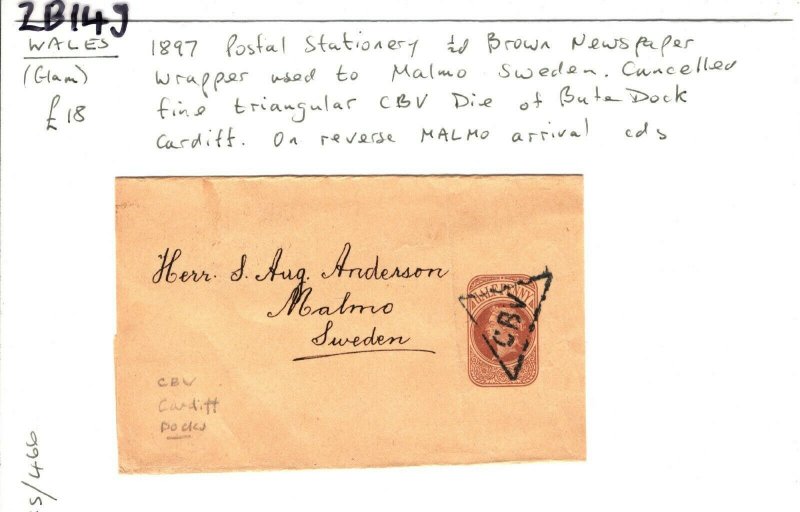 ZB149
WALES
(Glam)
£18
1897 Postal Stationery ½d Brown Newspaper
wrapper used to Malmo Sweden. Cancelled
fine triangular CBV Die of Bute Dock
Cardiff. On reverse MALMO arrival cds
Herr. S. Aug. Anderson
Malmo
Sweden
HALFPENNY
CBV
CBV
Cardiff
Docks
/466